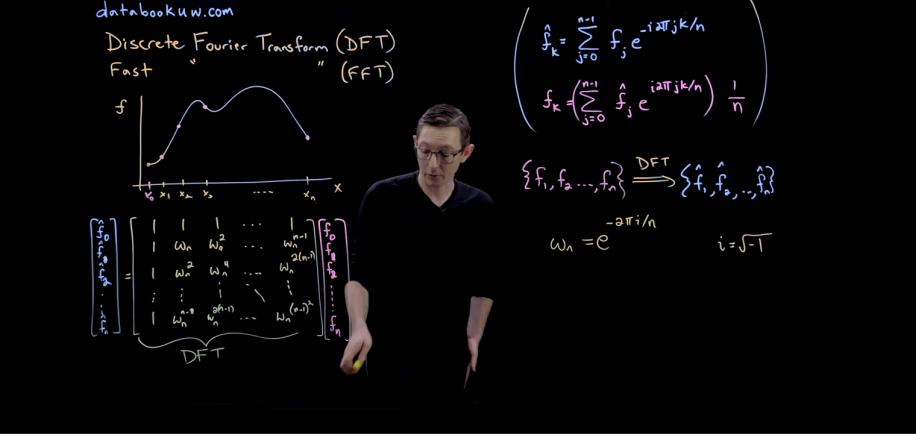 databookuw.com
Discrete Fourier Transform (DFT)
Fast " " (FFT)
f
x₀ x₁ x₂ x₃ .... xₙ x
[f̂₀ f̂₁ f̂₂ ⋮ f̂ₙ] =
1 1 1 ... 1
1 ωₙ ωₙ² ... ωₙⁿ⁻¹
1 ωₙ² ωₙ⁴ ... ωₙ²⁽ⁿ⁻¹⁾
⋮ ⋮ ⋮ ⋱ ⋮
1 ωₙⁿ⁻¹ ωₙ²⁽ⁿ⁻¹⁾ ... ωₙ⁽ⁿ⁻¹⁾²
[f₀ f₁ f₂ ⋮ fₙ]
DFT
f̂ₖ = Σ_{j=0}^{n-1} fⱼ e^{-i2πjk/n}
fₖ = (Σ_{j=0}^{n-1} f̂ⱼ e^{i2πjk/n}) 1/n
{f₁, f₂ ..., fₙ} DFT ⟹ {f̂₁, f̂₂, ..., f̂ₙ}
ωₙ = e^{-2πi/n} i = √-1